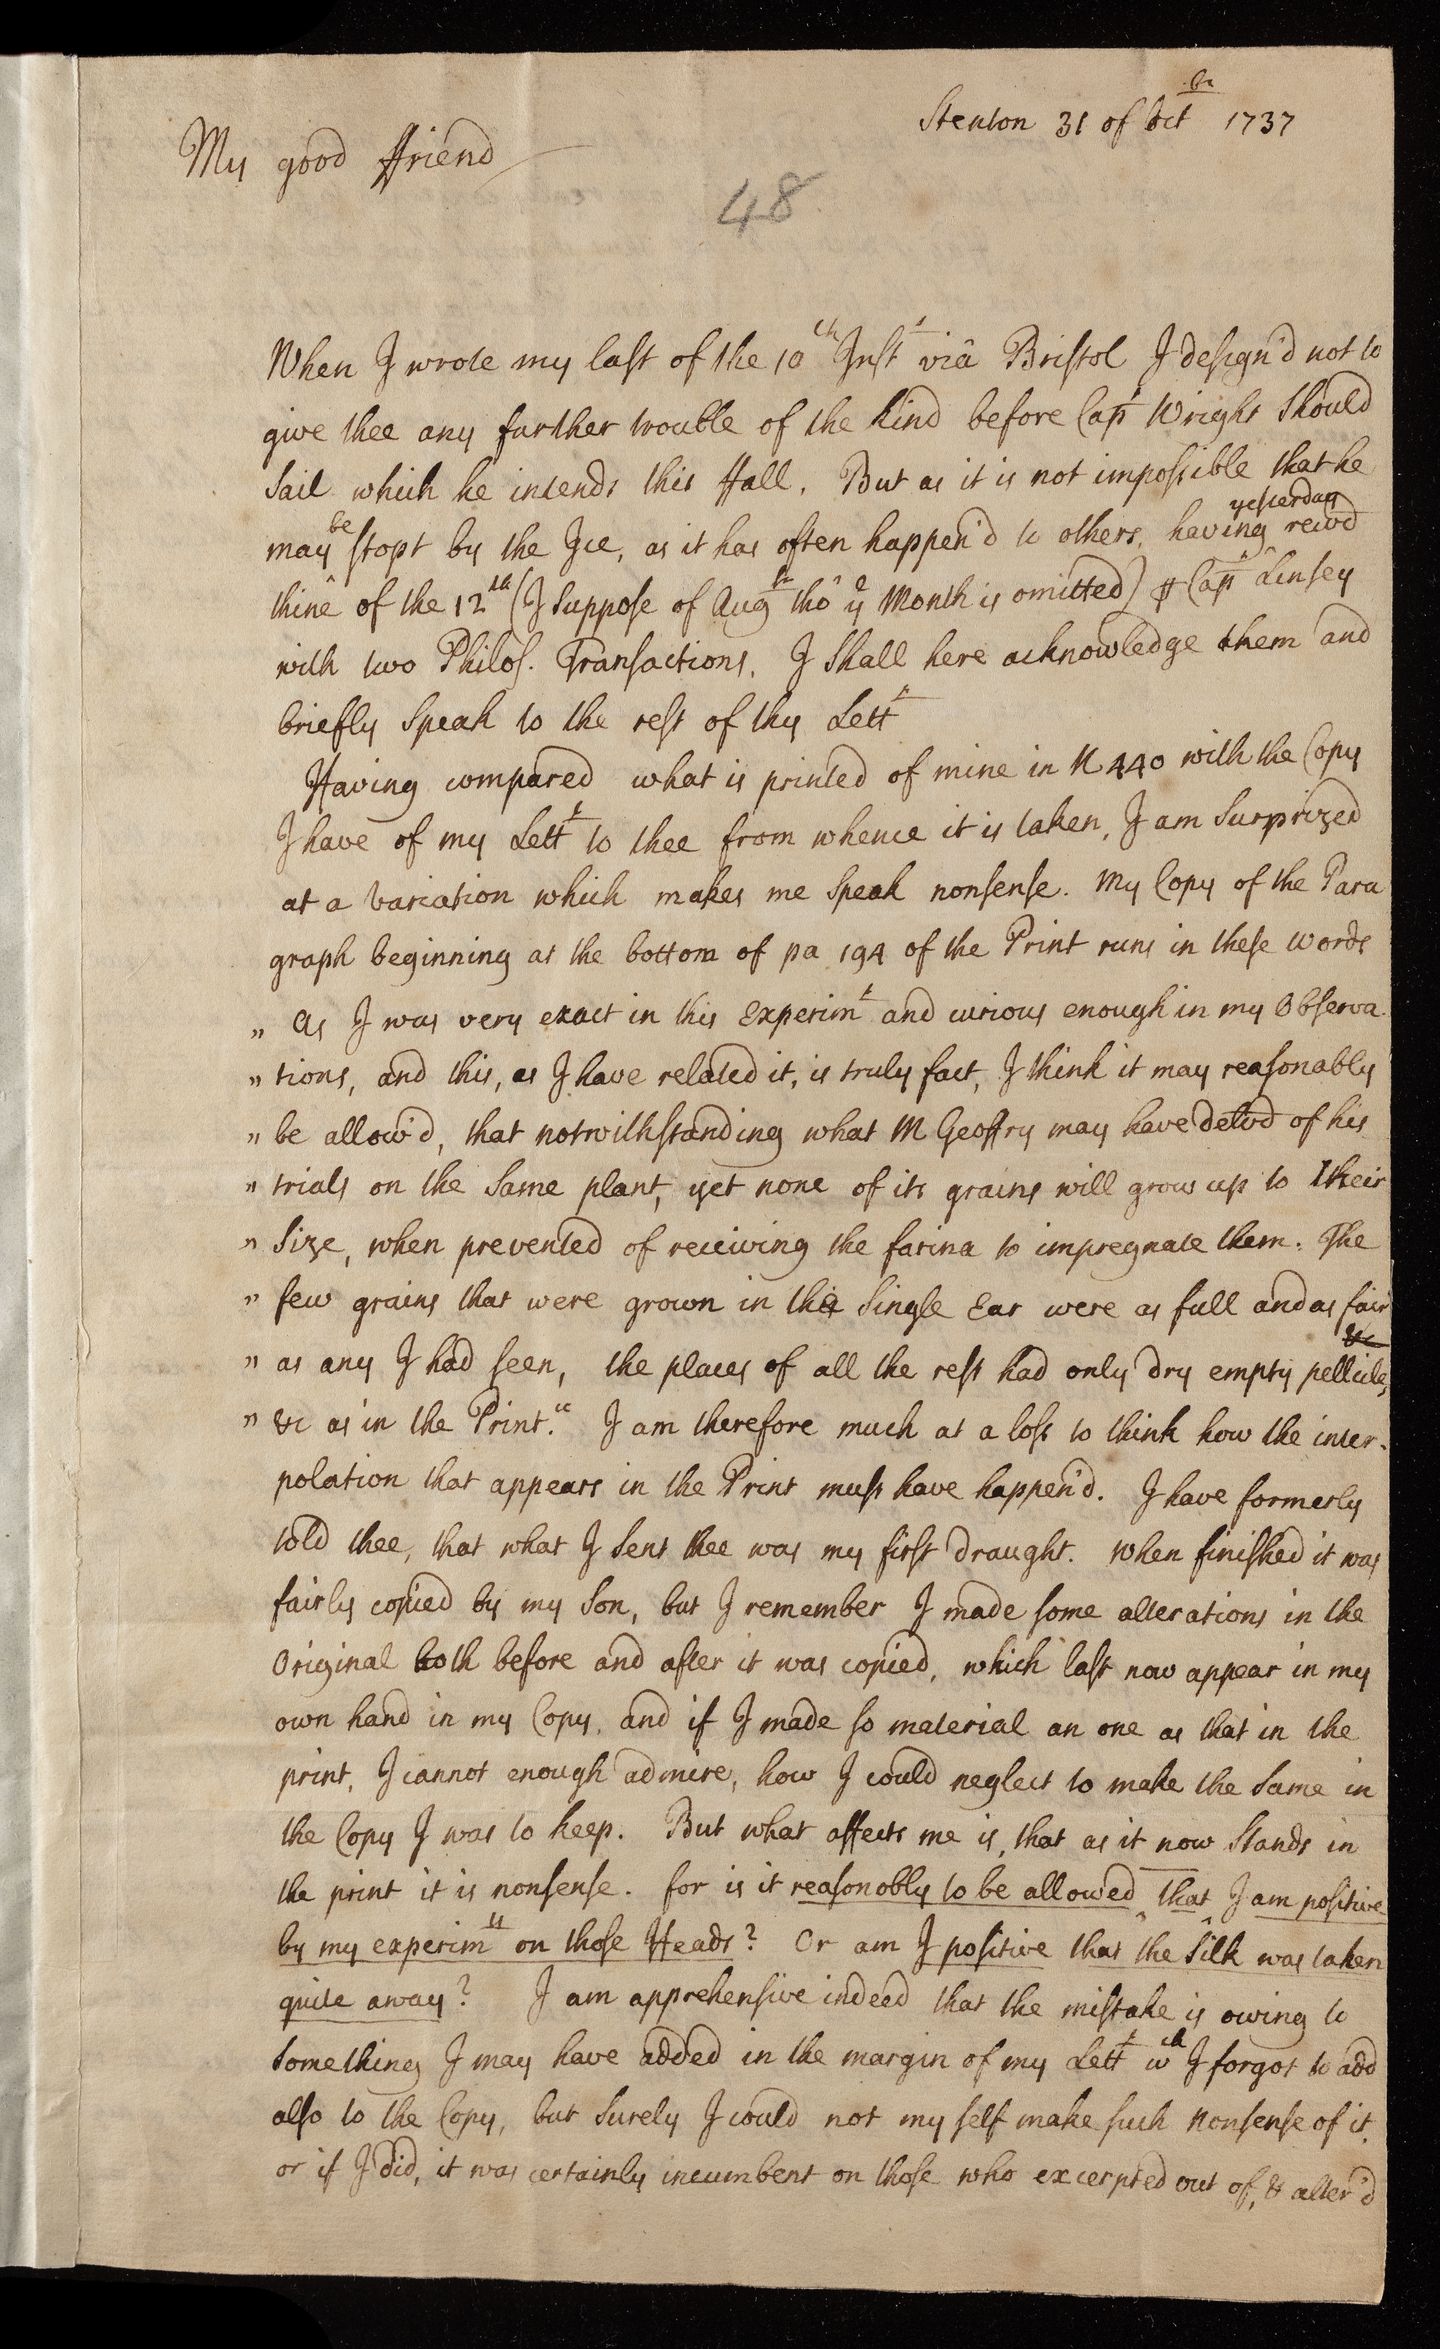 Stenton 31 of Oct^br 1737
My good ffriend
48
When I wrote my last of the 10^th Inst^t viâ Bristol I design'd not to
give thee any further trouble of the kind before Cap^t Wright should
Sail which he intends this ffall. But as it is not impossible that he
may ^be stopt by the Ice, as it has often happen'd to others, having ^yesterday recvd
thine of the 12^th (I suppose of Aug^st tho' y^e Month is omitted) ⅌ Cap^t Linsey
with two Philos. Transactions, I shall here acknowledge them and
briefly speak to the rest of thy Lett^r
Having compared what is printed of mine in N 440 with the Copy
I have of my Lett^r to thee from whence it is taken, I am Surprized
at a variation which makes me speak nonsense. My Copy of the Para
graph beginning at the bottom of pa 194 of the Print runs in these words
„ As I was very exact in this Experim^t and curious enough in my Observa
„ tions, and this, as I have related it, is truly fact, I think it may reasonably
„ be allow'd, that notwithstanding what M Geoffry may have delivd of his
„ trials on the same plant, yet none of its grains will grow up to their
„ Size, when prevented of receiving the farina to impregnate them. The
„ few grains that were grown in this Single Ear were as full and as fair
„ as any I had seen, the places of all the rest had only dry empty pellicles,
„ &c as in the Print." I am therefore much at a loss to think how the inter-
polation that appears in the Print must have happend. I have formerly
told thee, that what I sent thee was my first draught. When finished it was
fairly copied by my Son, but I remember I made some alterations in the
Original both before and after it was copied, which last now appear in my
own hand in my Copy, and if I made so material an one as that in the
print, I cannot enough admire, how I could neglect to make the same in
the Copy I was to keep. But what affects me is, that as it now stands in
the print it is nonsense. for is it reasonobly to be allowed that I am positive
by my experim^ts on those Heads? Or am I positive that the Silk was taken
quite away? I am apprehensive indeed that the mistake is owing to
something I may have added in the margin of my Lett^r w^ch I forgot to add
also to the Copy, but surely I could not my self make such nonsense of it,
or if I did, it was certainly incumbent on those who excerpted out of, & alter'd